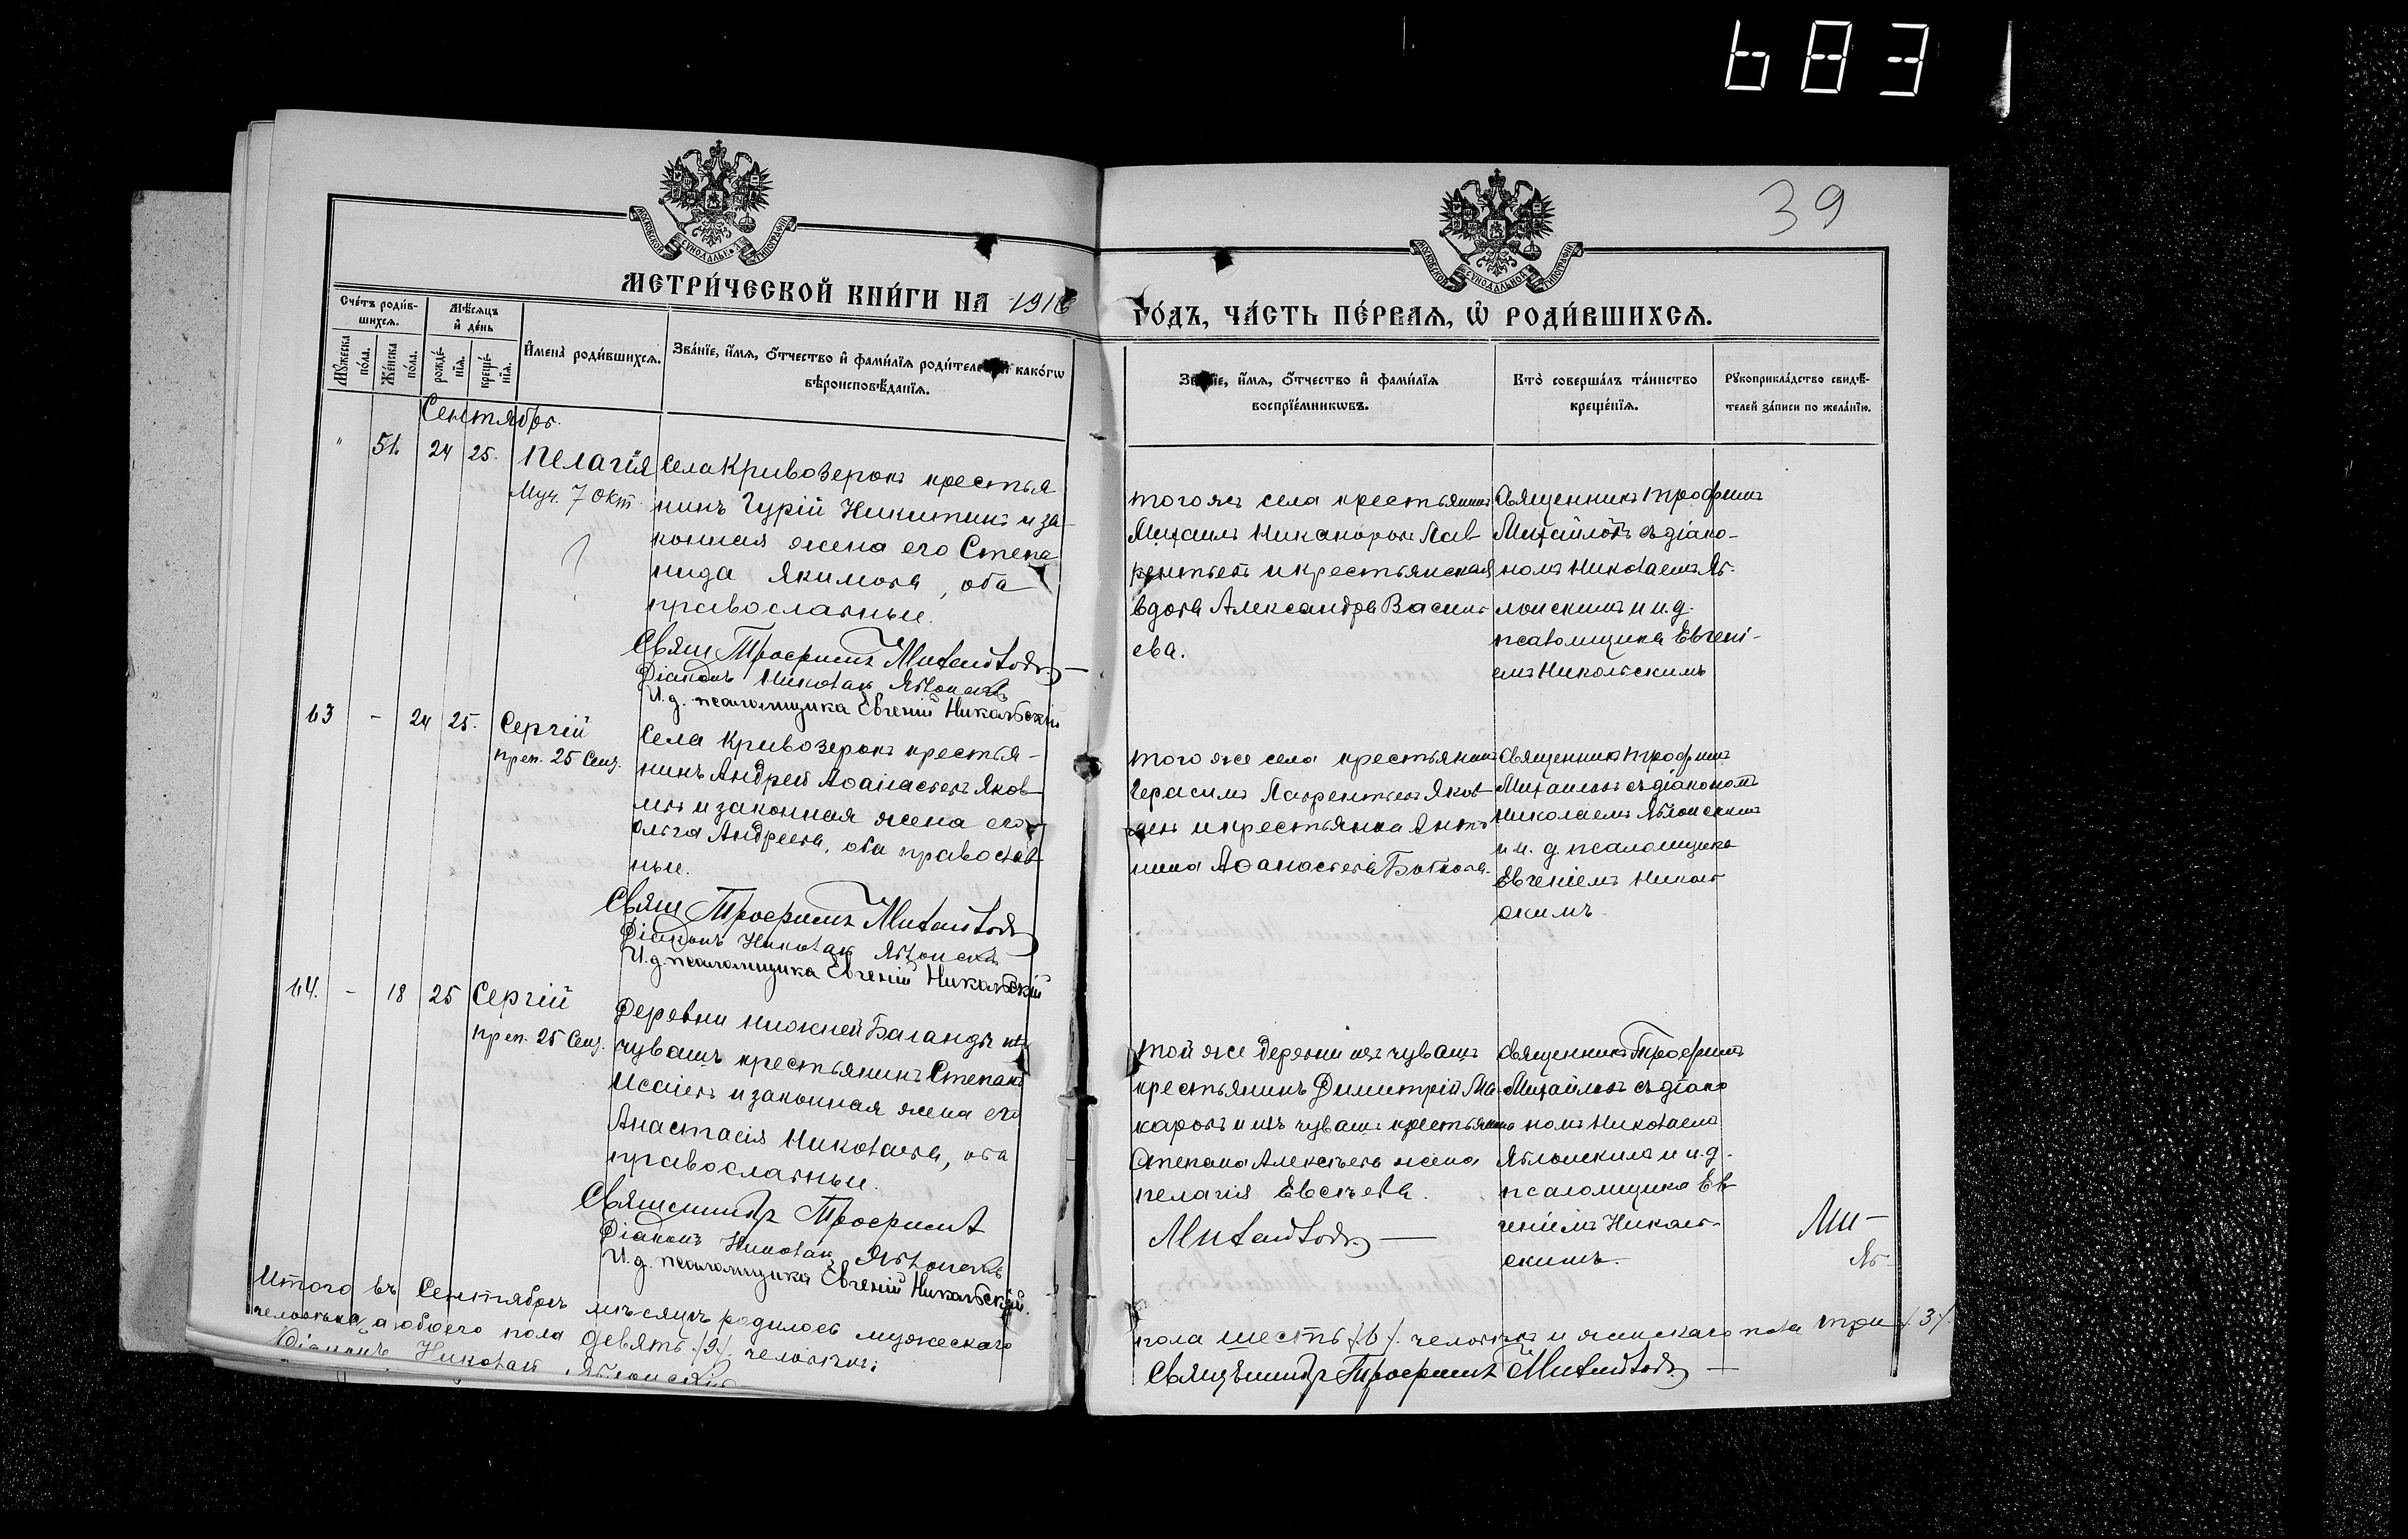 683
39
МОСКОВСКОЙ СѴНОДАЛЬНОЙ ТИПОГРАФІИ
МОСКОВСКОЙ СѴНОДАЛЬНОЙ ТИПОГРАФІИ
МЕТРИ́ЧЕСКОЙ КНИ́ГИ НА 1916
ГО́ДЪ, ЧА́СТЬ ПЕ́РВАЯ, Ѡ҆ РОДИ́ВШИХСЯ.
Сче́тъ роди́в-
шихся.
Мѣ́сяцъ
и҆ де́нь
Мꙋ́жеска
по́ла.
Же́нска
по́ла.
рожде́-
нїя.
креще́-
нїя.
И҆мена̀ роди́вшихся.
Зва́нїе, и҆́мя, ѻ҆́тчество и҆ фами́лїя роди́теле како́гѡ
вѣроисповѣ́данїя.
Зва́нїе, и҆́мя, ѻ҆́тчество и҆ фами́лїя
воспрїе́мникѡвъ.
Кто̀ соверша́лъ та́инство
креще́нїя.
Рꙋкоприкла́дство свидѣ́-
телей за́писи по жела́нїю.
Сентябрь.
" 51. 24 25. Пелагія
Муч. 7 Окт.
Села Кривозерокъ крестья
нинъ Гурій Никитинъ и за-
конная жена его Степа
нида Якимова, оба
православные.
Свящ Трофимъ Михайловъ
Діаконъ Николай Яблонскій
И.д. псаломщика Евгеній Никольскій
того же села крестьянинъ
Михаилъ Никаноровъ Лав
рентьевъ и крестьянская
вдова Александра Василь
ева.
Священникъ Трофимъ
Михайловъ съ діако-
номъ Николаемъ Яб-
лонскимъ и и.д.
псаломщика Евгені-
емъ Никольскимъ
63 - 24 25. Сергій
преп. 25 Сен.
Села Кривозерокъ крестья-
нинъ Андрей Аѳанасьевъ Яков-
левъ и законная жена его
Ольга Андреева, оба православ-
ные.
Свящ Трофимъ Михайловъ
Діаконъ Николай Яблонскій
И.д. псаломщика Евгеній Никольскій
того же села крестьянинъ
Герасимъ Лаврентьевъ Яков
левъ и крестьянка Анто
нина Аѳанасьева
Священникъ Трофимъ
Михайловъ съ діакономъ
Николаемъ Яблонскимъ
и и. д. псаломщика
Евгеніемъ Николь
скимъ.
64. - 18 25 Сергій
преп. 25 Сен.
Деревни Нижней Баланды изъ
чувашъ крестьянинъ Степанъ
Исаіевъ и законная жена его
Анастасія Николаева, оба
православные.
Священникъ Трофимъ
Діаконъ Николай Яблонскій
И.д. псаломщика Евгеній Никольскій.
той же деревни изъ чувашъ
крестьянинъ Димитрій Ма-
каровъ и изъ чувашъ крестьянина
Степана Алексѣева жена
Пелагія Евсѣева.
Михайловъ
Священникъ Трофимъ
Михайловъ съ діако
номъ Николаемъ
Яблонскимъ и и.д.
псаломщика Ев
геніемъ Николь-
скимъ.
Ми-
Яб-
Итого въ Сентябрѣ мѣсяцѣ родилось мужескаго
пола шесть /6/. человѣкъ и женскаго пола три /3/.
человѣка, а обоего пола девять /9/. человѣкъ.
Діаконъ Николай Яблонскій
Священникъ Трофимъ Михайловъ